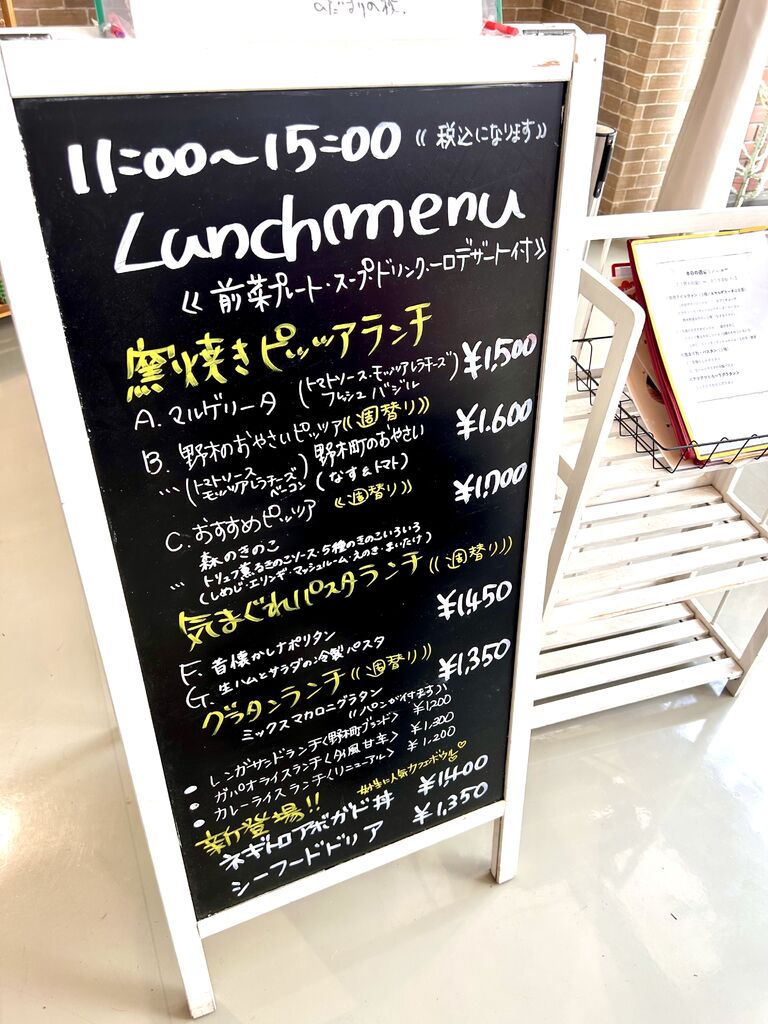 11:00～15:00 《税込になります》
Lunch menu
《前菜プレート・スープ・ドリンク・一口デザート付》
窯焼きピッツアランチ
A. マルゲリータ (トマトソース・モッツアレラチーズ フレッシュバジル) ¥1,500
B. 野木のおやさいピッツア《週替り》 ¥1.600
… (トマトソース モッツアレラチーズ ベーコン) 野木町のおやさい (なす&トマト)
C. おすすめピッツア 《週替り》 ¥1,700
森のきのこ
… トリュフ薫るきのこソース・5種のきのこいろいろ
(しめじ・エリンギ・マッシュルーム・えのき・まいたけ)
気まぐれパスタランチ《週替り》
F. 昔懐かしナポリタン ¥1,450
G. 生ハムとサラダの冷製パスタ
グラタンランチ《週替り》 ¥1,350
ミックスマカロニグラタン
《パンが付ます》
• レンガサンドランチ〈野木町ブランド〉 ¥1200
• ガパオライスランチ〈タイ風甘辛〉 ¥1,300
• カレーライスランチ〈リニューアル〉 ¥1,200
新登場!! 女性に人気カフェドウル♡
ネギトロアボガド丼 ¥1400
シーフードドリア ¥1,350